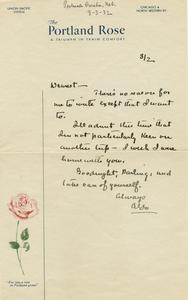 UNION PACIFIC
SYSTEM
CHICAGO &
NORTH WESTERN RY.
The
Portland Rose
A TRIUMPH IN TRAIN COMFORT
3/2
Dearest—
There's no reason for
me to write except that I want
to.
I'll admit this time that
I'm not particularly keen on
another trip — I wish I were
home with you.
Goodnight, Darling, and
take care of yourself.
Always
"For you a rose
in Portland grows"